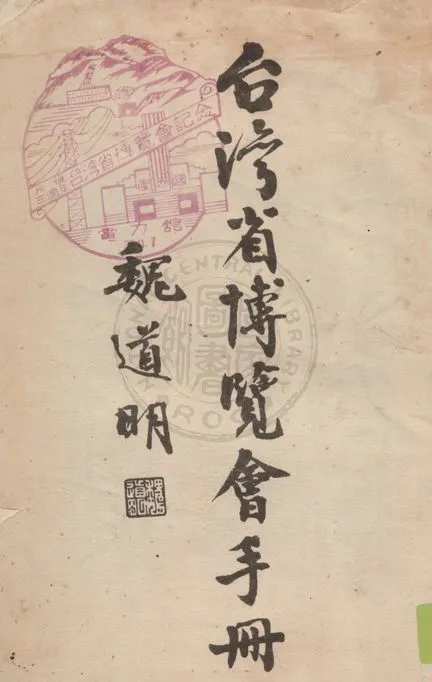 台灣省博覽會手冊
魏道明
台湾省博覽會記念
電力館
NATIONAL CENTRAL LIBRARY